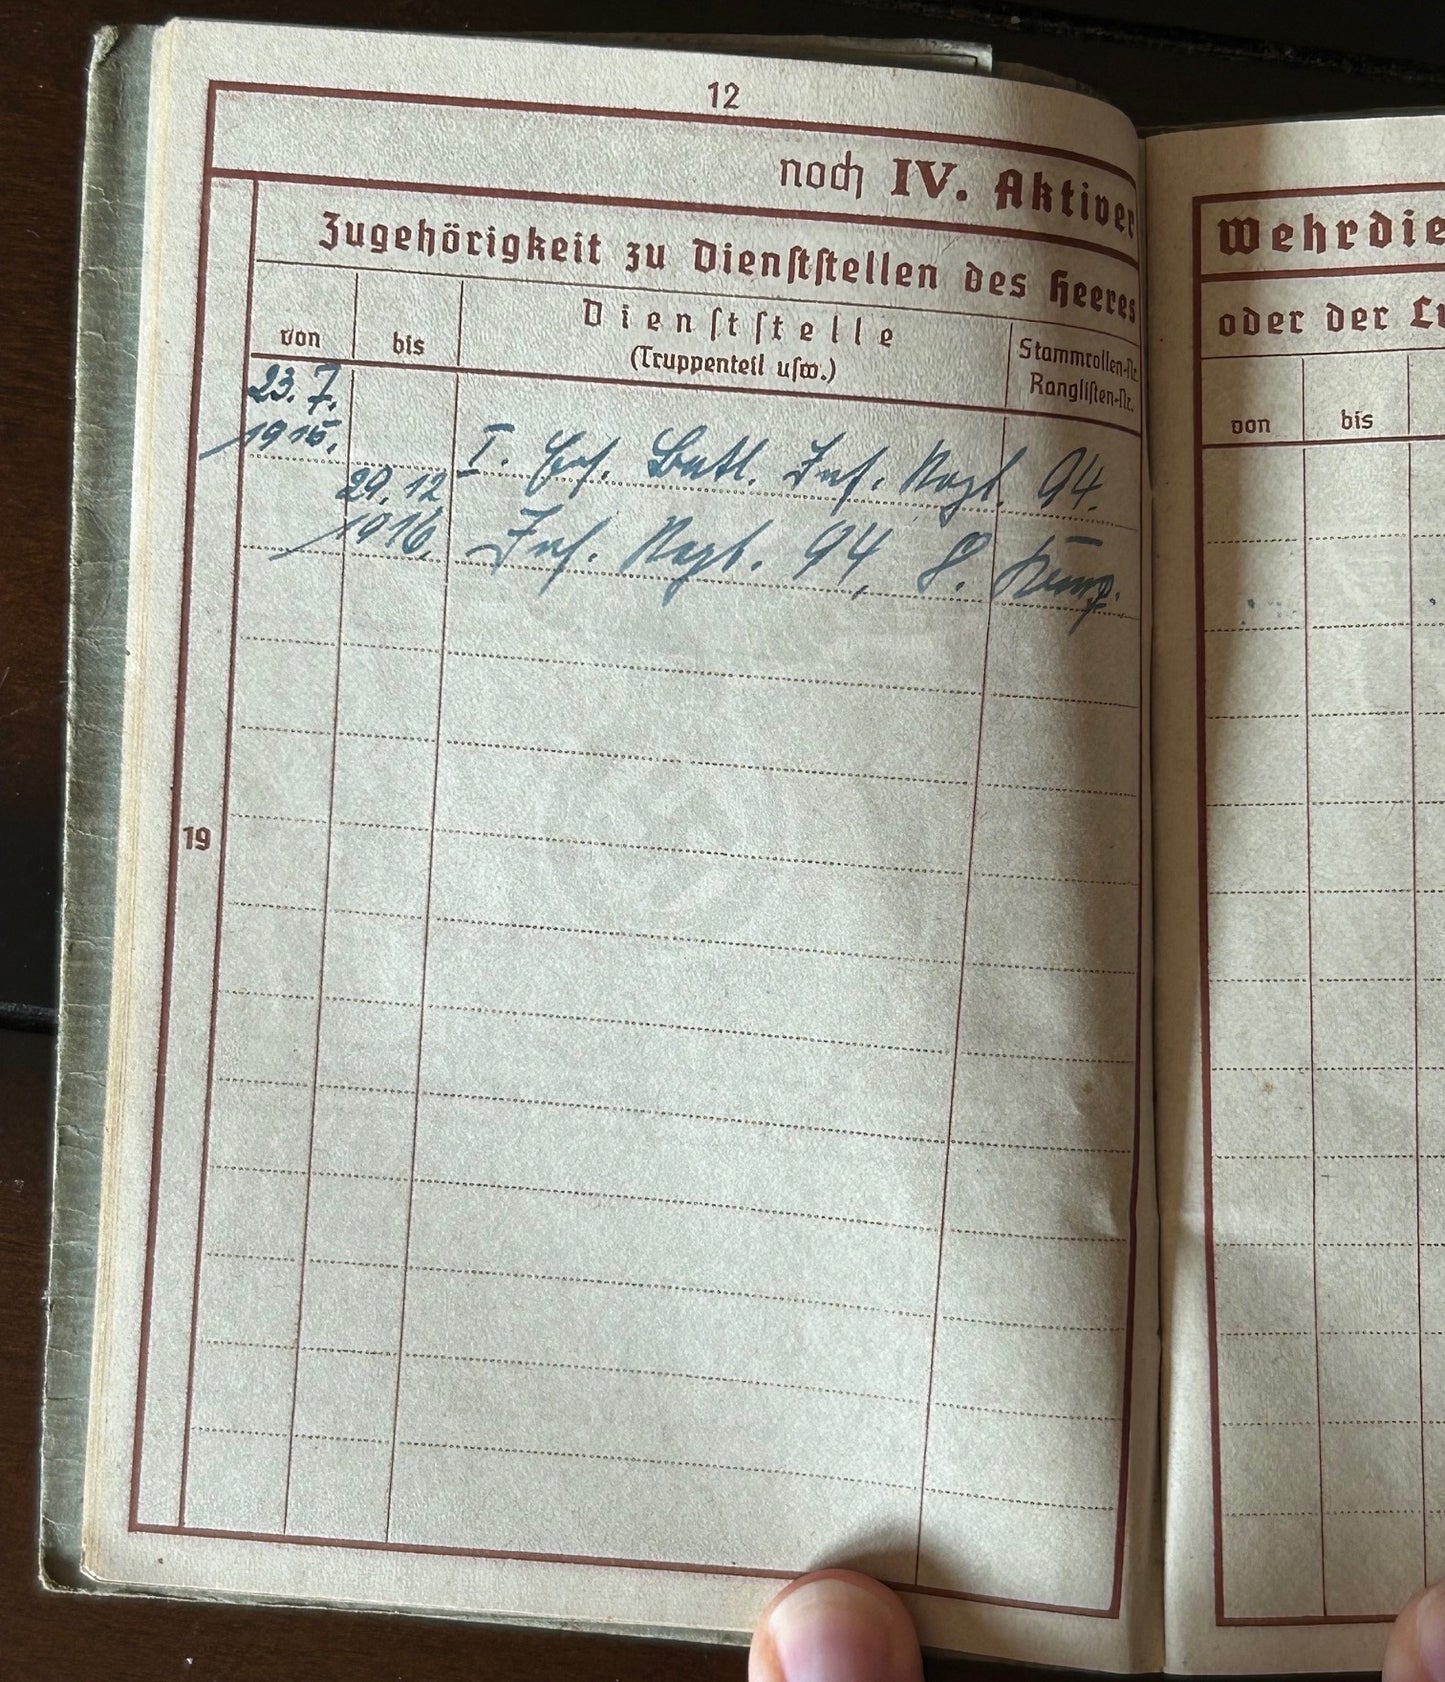 12
noch IV. Aktiver
Zugehörigkeit zu Dienststellen des Heeres
von
bis
Dienststelle
(Truppenteil usw.)
Stammrollen-Nr.
Ranglisten-Nr.
23. 7.
1915.
I. Ers. Batl. Inf. Regt. 94.
29. 12
1916.
Inf. Regt. 94, 8. Komp.
19
Wehrdie
oder der Lu
von
bis